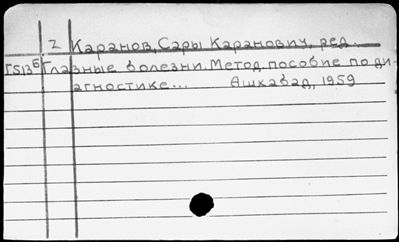 2 Каранов, Сары Каранович, ред.
Глазные болезни. Метод. пособие по ди-
агностике... Ашхабад, 1959